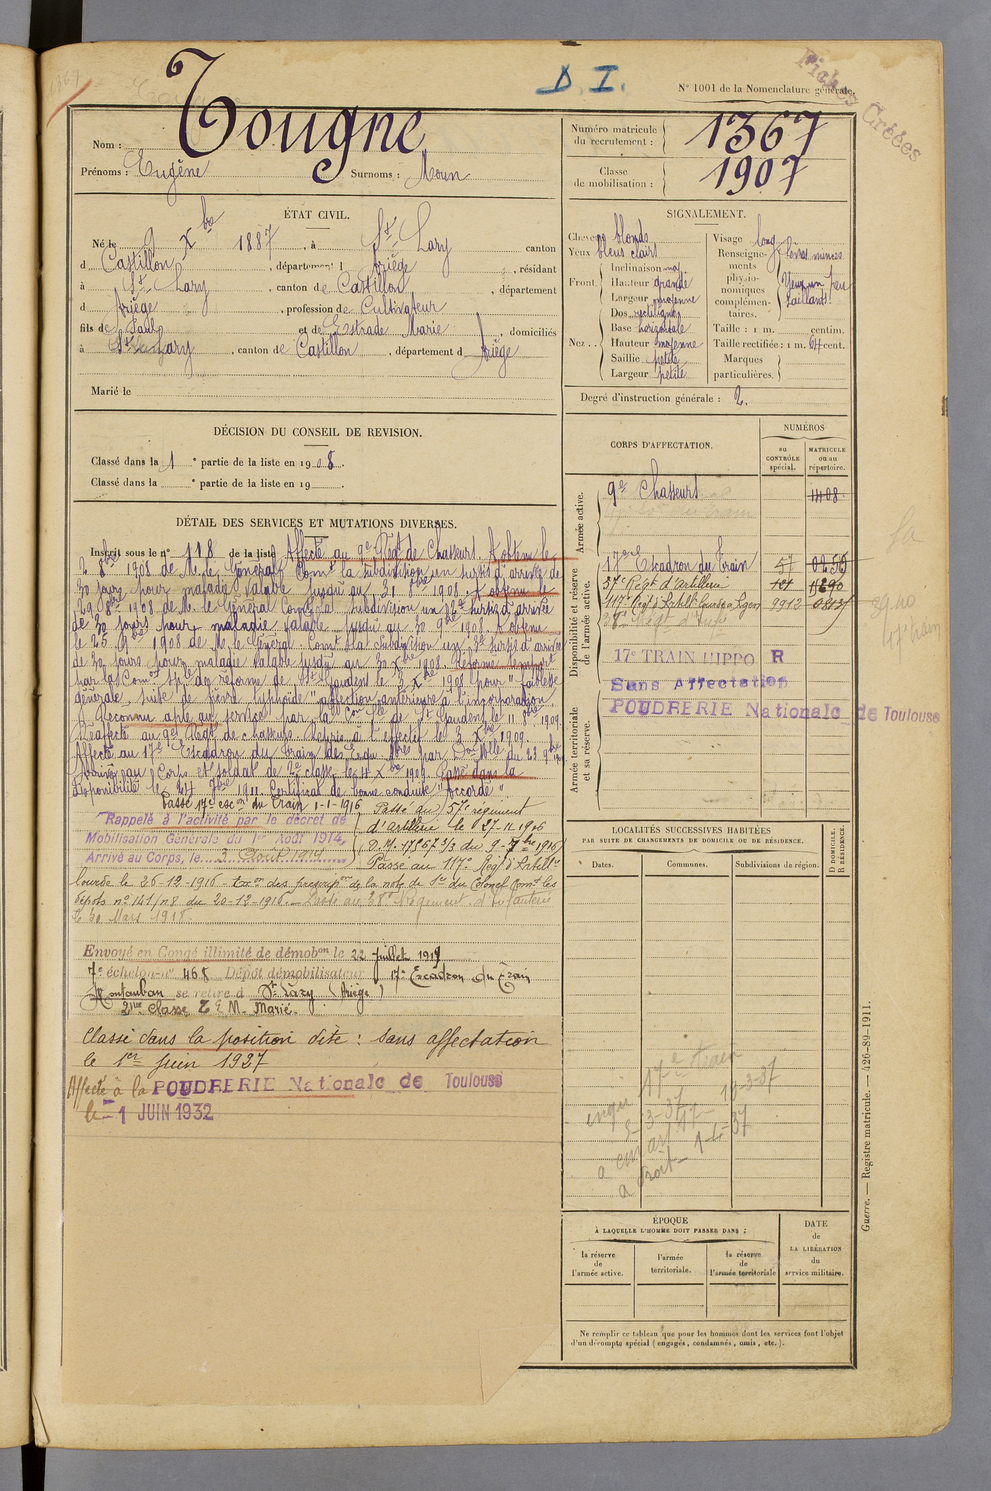 D. I.
N° 1001 de la Nomenclature générale.
Fiches Créées
1367
Nom : Tougne
Prénoms : Eugène Surnoms : Moun
Numéro matricule du recrutement : 1367
Classe de mobilisation : 1907
ÉTAT CIVIL.
Né le 9 Xbre 1887, à St Lary canton
d Castillon, département d Ariège, résidant
à St Lary, canton de Castillon, département
d Ariège, profession de Cultivateur
fils de Paul et de Estrade Marie, domiciliés
à St Lary, canton de Castillon, département d Ariège
Marié le
SIGNALEMENT.
Cheveux blonds
Yeux bleus clairs
Front
Inclinaison moy
Hauteur grande
Largeur moyenne
Nez
Dos rectiligne
Base horizontale
Hauteur moyenne
Saillie petite
Largeur petite
Visage long
Renseignements physionomiques complémentaires. Lèvres minces Yeux un peu saillants
Taille : 1 m. centim.
Taille rectifiée : 1 m. 64 cent.
Marques particulières.
Degré d'instruction générale : 2.
DÉCISION DU CONSEIL DE REVISION.
Classé dans la 1e partie de la liste en 1908.
Classé dans la e partie de la liste en 19
CORPS D'AFFECTATION.
NUMÉROS
au CONTRÔLE spécial.
MATRICULE ou au répertoire.
Armée active.
9e Chasseurs 1408
Disponibilité et réserve de l'armée active.
17eme Escadron du Train 57 0256
57e Regt d'artillerie
117e Regt d'Artill. Lourde 9912
38e Regt d'Infie
17e TRAIN HIPPO R
Sans Affectation
POUDRERIE Nationale de Toulouse
Armée territoriale et sa réserve.
DÉTAIL DES SERVICES ET MUTATIONS DIVERSES.
Inscrit sous le n° 118 de la liste Affecté au 9e Régt de Chasseurs. A obtenu le
2 8bre 1908 de M. le Général Comt la subdivision un sursis d'arrivée de
30 jours pour maladie valable jusqu'au 31 8bre 1908. A obtenu le
29 8bre 1908 de M. le Général Comt la subdivision un 2e sursis d'arrivée
de 30 jours pour maladie valable jusqu'au 30 9bre 1908. A obtenu
le 25 9bre 1908 de M. le Général Comt la subdivision un 3e sursis d'arrivée
de 30 jours pour maladie valable jusqu'au 30 Xbre 1908. Réformé tempore
par la Comon Sple de réforme de St Gaudens le 3 Xbre 1908 pour "faiblesse
générale, suite de fièvre typhoïde" affection antérieure à l'incorporation.
Reconnu apte au service par la Con Sple de St Gaudens le 11 8bre 1909.
Réaffecté au 9e Régt de chasseurs. Repris à l'effectif le 3 Xbre 1909.
Affecté au 17e Escadron du Train des Equ. Mres par Don Mlle du 23 9bre 1909
Arrivé au Corps et soldat de 2e classe le 4 Xbre 1909. Passé dans la
disponibilité le 24 7bre 1911. Certificat de bonne conduite "accordé".
Passé 17e escon du Train 1-1-1916
Rappelé à l'activité par le décret de
Mobilisation Générale du 1er Août 1914,
Arrivé au Corps, le 3 Août 1914
Passé au 57e régiment
d'artillerie le 27-11-1916
D.M. 17267 3/3 du 9-7bre 1916
Passé au 117e Régt d'Artillie
lourde le 26-12-1916 - Exon des prescripon de la note de Sce du Colonel Comt les
dépôts n° 141/n8 du 20-12-1916. Passé au 38e Régiment d'Infanterie
le 30 Mars 1918.
Envoyé en Congé illimité de démobon le 22 Juillet 1919
7e échelon n° 468 Dépôt démobilisateur 17e Escadron du Train
Montauban se retire à St Lary (Ariège)
Classé dans la position dite : sans affectation
le 1er Juin 1927
Affecté à la POUDRERIE Nationale de Toulouse
le - 1 JUIN 1932
LOCALITÉS SUCCESSIVES HABITÉES
PAR SUITE DE CHANGEMENTS DE DOMICILE OU DE RÉSIDENCE.
Dates. Communes. Subdivisions de région. D DOMICILE. R RÉSIDENCE.
17e train
ÉPOQUE
À LAQUELLE L'HOMME DOIT PASSER DANS :
la réserve de l'armée active.
l'armée territoriale.
la réserve de l'armée territoriale
DATE de LA LIBÉRATION du service militaire.
Ne remplir ce tableau que pour les hommes dont les services font l'objet
d'un décompte spécial (engagés, condamnés, omis, etc.).
Guerre. — Registre matricule. — 426-89-1911.